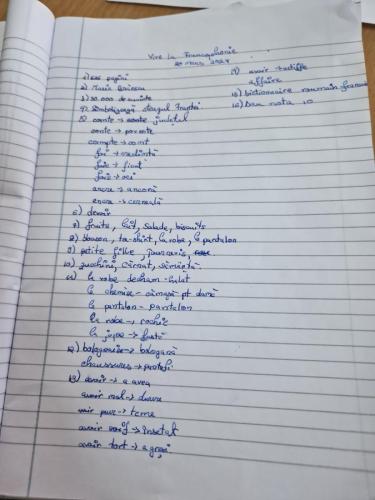 Vive la Francophonie
20 mars 2024
1) 626 pagini
2) Maria
3) 30.000 de cuvinte
4) Simbolizează steagul Franței
5) comte → județul
conte → poveste
compte → cont
foi → credință
foie → ficat
fois → ori
ancre → ancoră
encre → cerneală
6) devoir
7) fruits, lait, salade, biscuits
8) blouson, ta-shirt, la robe, le pantalon
9) petite fille,
10) zucchini, cârnat, sămânță.
11) la robe de cham - halat
la chemise - cămașă pt damă
le pantalon - pantalon
la robe - rochie
la jupe → fustă
12) →
chaussures → pantofi
13) avoir → a avea
avoir mal → durea
avoir peur → teme
avoir soif → însetat
avoir tort → a greși
14) avoir →
affaire
15) dictionnaire roumain-français
16) Dau nota 10